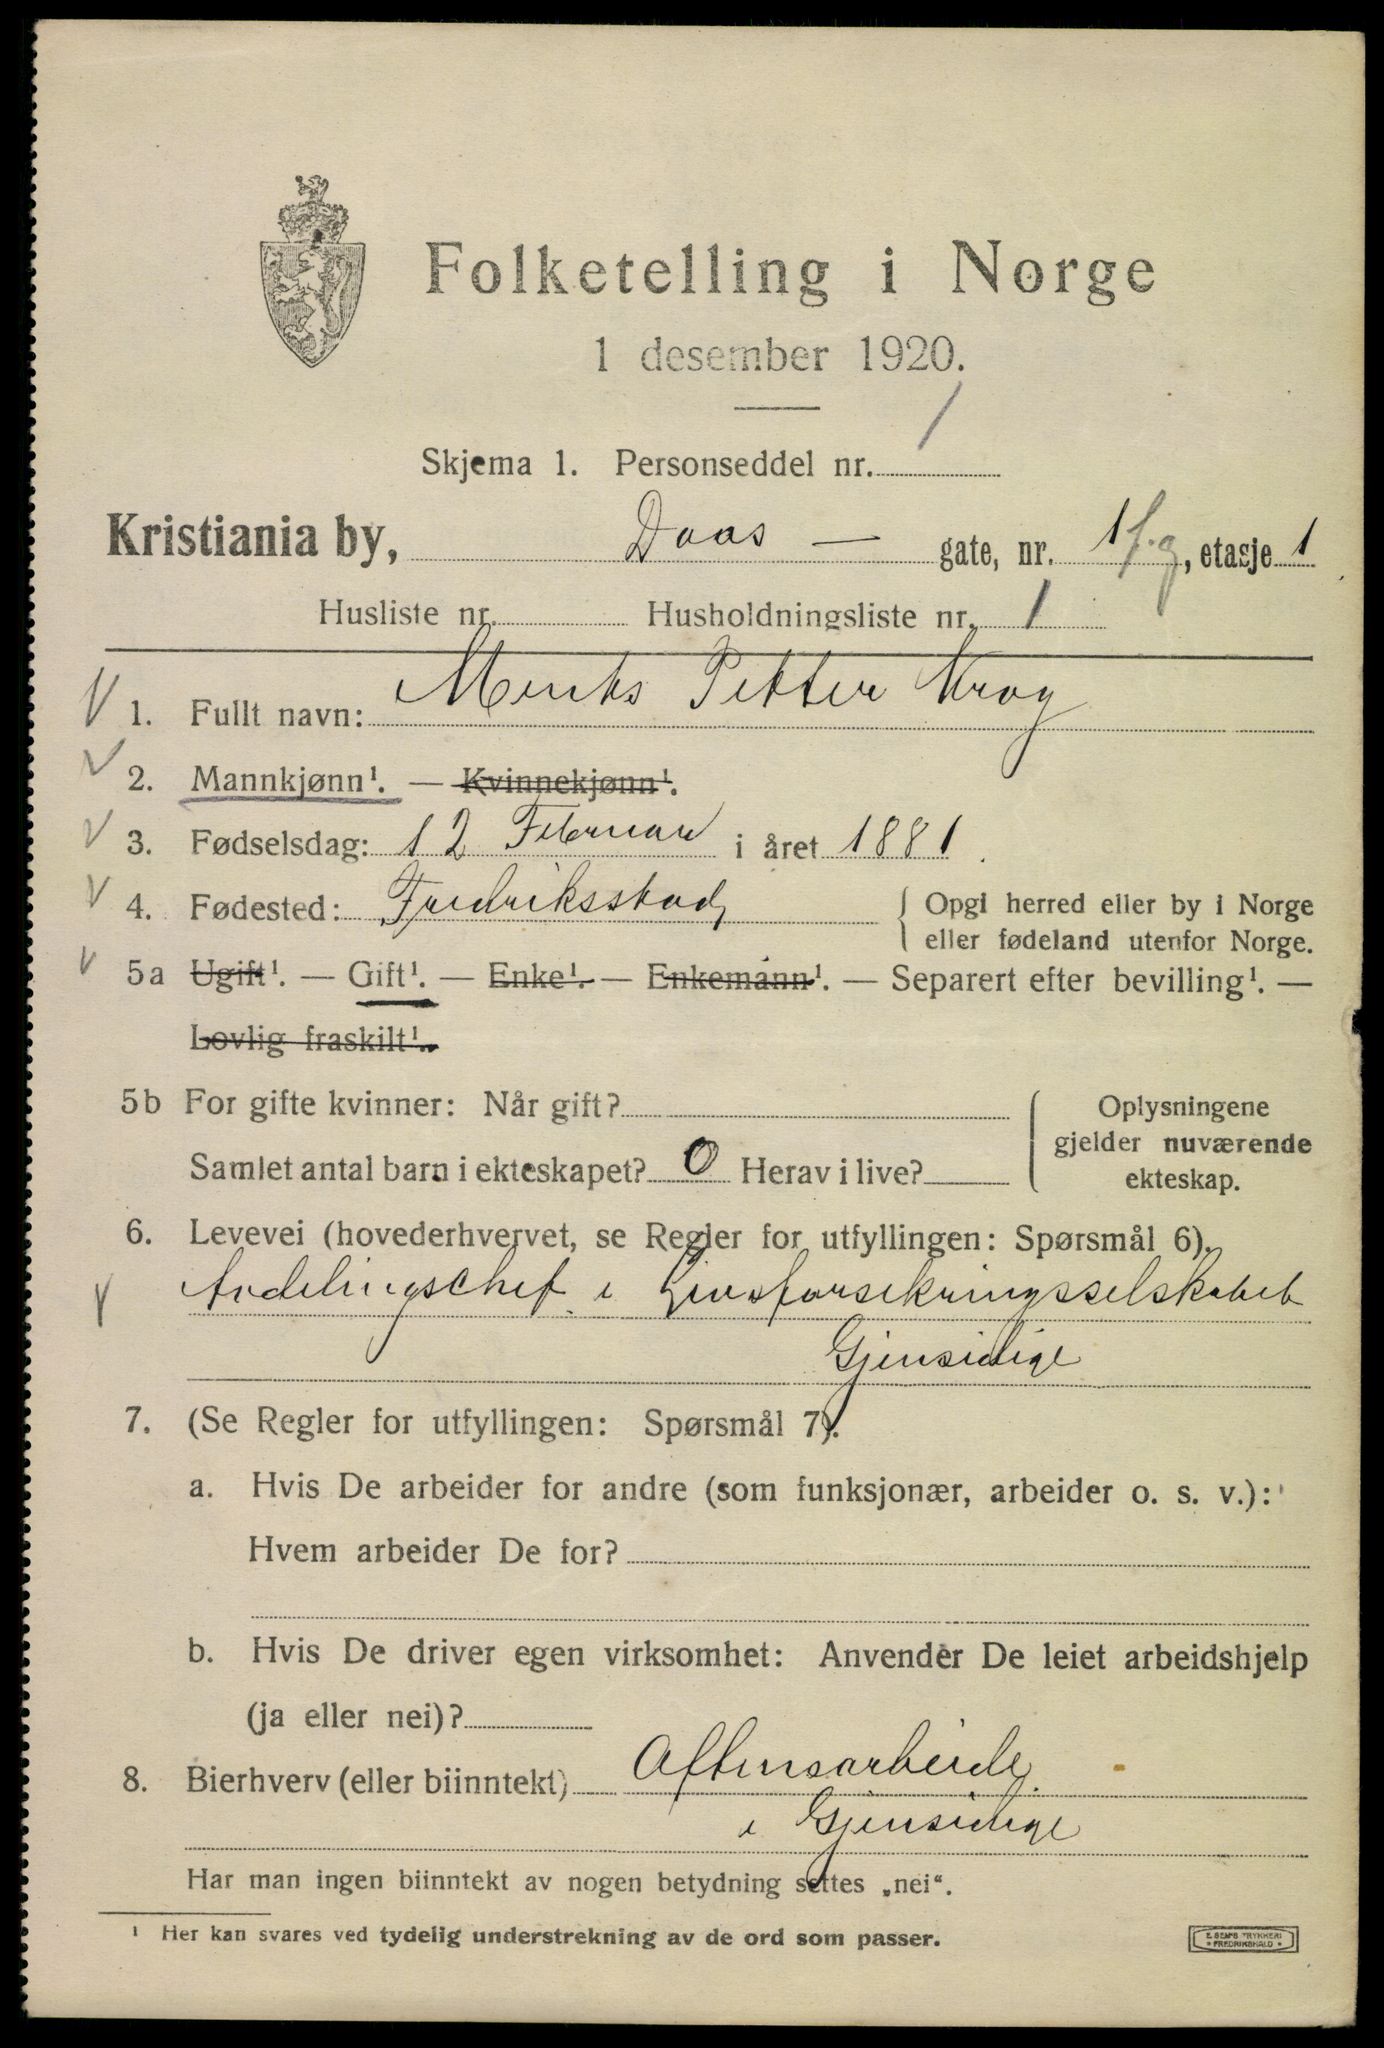 Folketelling i Norge
1 desember 1920.
Skjema 1. Personseddel nr. 1
Kristiania by, Daas — gate, nr. 1 f.g, etasje 1
Husliste nr. Husholdningsliste nr. 1
1. Fullt navn: Mentz Petter Krog
2. Mannkjønn¹. — Kvinnekjønn¹.
3. Fødselsdag: 12 Februar i året 1881.
4. Fødested: Fredriksstad { Opgi herred eller by i Norge
eller fødeland utenfor Norge.
5a Ugift¹. — Gift¹. — Enke¹. — Enkemann¹. — Separert efter bevilling¹. —
Lovlig fraskilt¹.
5b For gifte kvinner: Når gift?
Samlet antal barn i ekteskapet? 0 Herav i live?
Oplysningene
gjelder nuværende
ekteskap.
6. Levevei (hovederhvervet, se Regler for utfyllingen: Spørsmål 6).
Avdelingschef i Livsforsikringsselskabet
Gjensidige
7. (Se Regler for utfyllingen: Spørsmål 7).
a. Hvis De arbeider for andre (som funksjonær, arbeider o. s. v.):
Hvem arbeider De for?
b. Hvis De driver egen virksomhet: Anvender De leiet arbeidshjelp
(ja eller nei)?
8. Bierhverv (eller biinntekt) Aftensarbeide
i Gjensidige
Har man ingen biinntekt av nogen betydning settes „nei“.
¹ Her kan svares ved tydelig understrekning av de ord som passer.
E. SEM'S TRYKKERI
• FREDRIKSHALD •